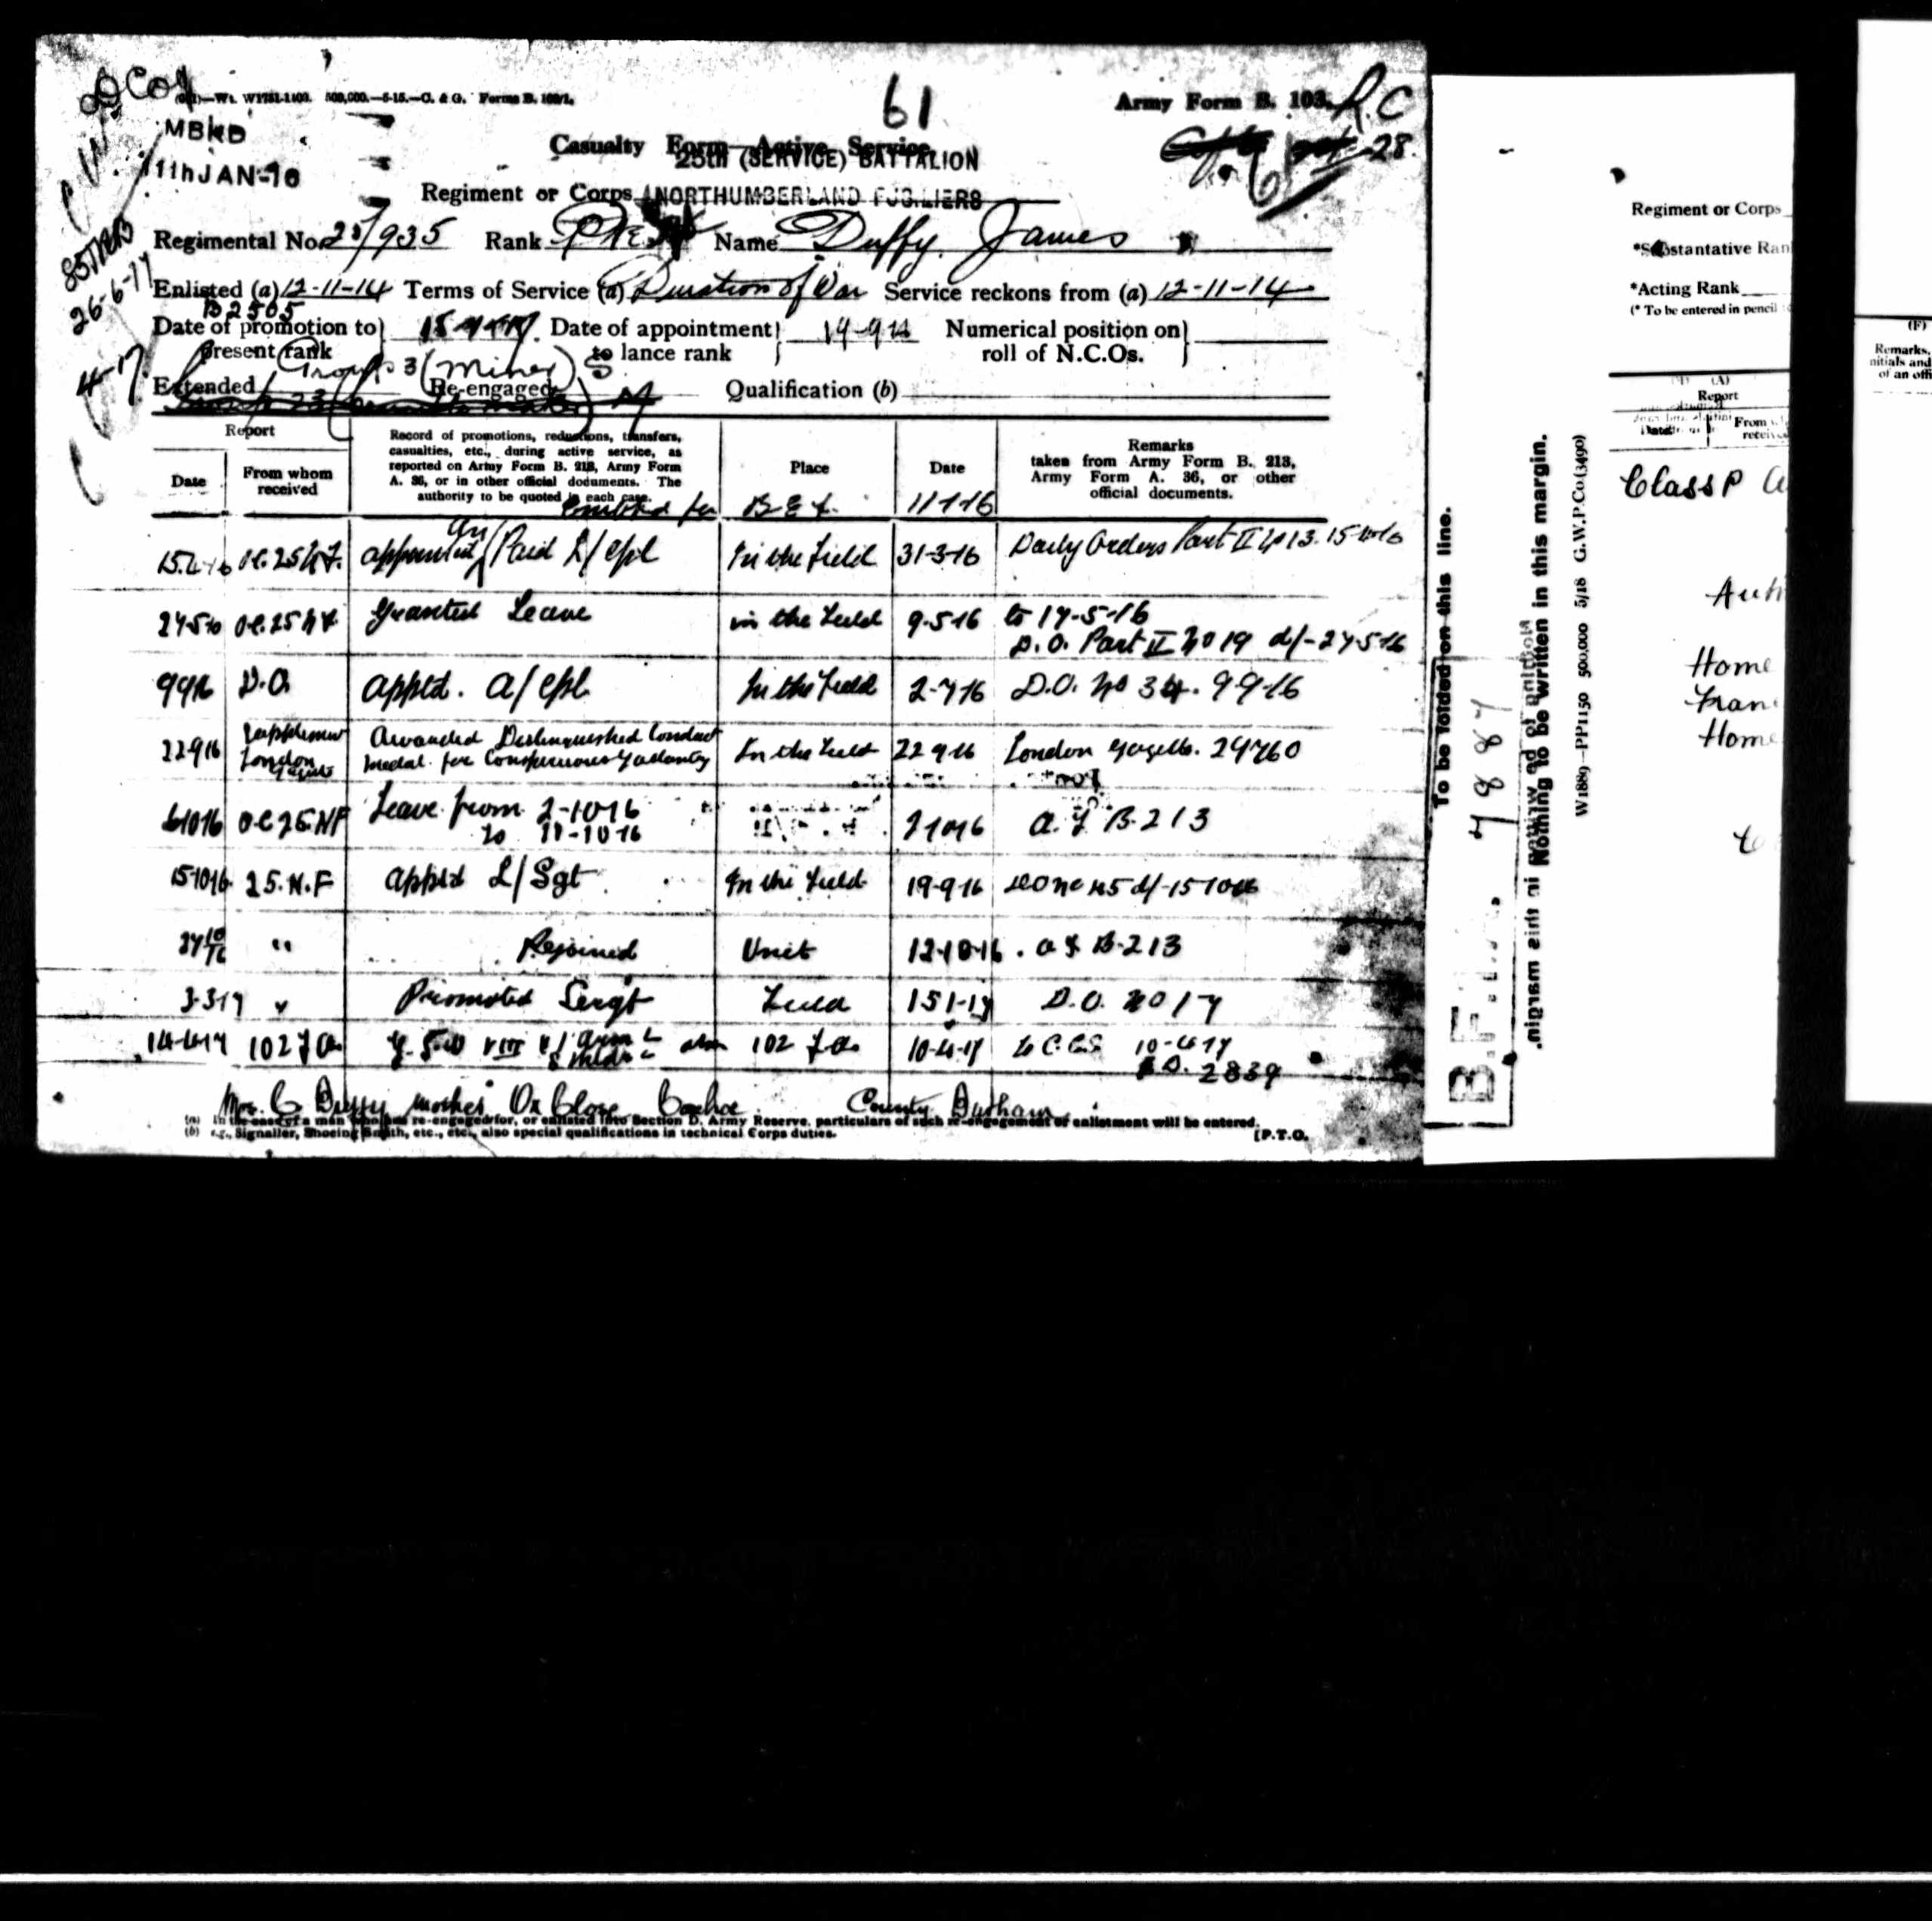 D Coy
Wt. W1751-1100. 500,000.—6-15.—C. & G. Forms B. 103/1.
61
Army Form B. 103.
R.C
MBKD
11th JAN
28.
Casualty Form—Active Service.
25th (SERVICE) BATTALION
Regiment or Corps NORTHUMBERLAND FUSILIERS
Regimental No. 25/935 Rank Pte Name Duffy James
85TRB
26-6-17
Enlisted (a) 12-11-14 Terms of Service (a) Duration of War Service reckons from (a) 12-11-14
B 2505
Date of promotion to present rank Date of appointment to lance rank Numerical position on roll of N.C.Os.
Group 3 (Miner) S
Extended Re-engaged Qualification (b)
Report
Date
From whom received
Record of promotions, reductions, transfers, casualties, etc., during active service, as reported on Army Form B. 213, Army Form A. 36, or in other official documents. The authority to be quoted in each case.
Place
Date
Remarks taken from Army Form B. 213, Army Form A. 36, or other official documents.
Embkd for B E F. 11-1-16
O.C. 25 N.F. Paid L/Cpl In the Field 31-3-16 Daily Orders Part II No 13.
O.C. 25 N F Granted Leave in the Field 9-5-16 to 17-5-16
D.O. Part II No 19 d/- 27-5-16
9916 D.O. Appted. A/Cpl In the Field 2-7-16 D.O. No 34. 9-9-16
22916 Supplement London Gazette Awarded Distinguished Conduct Medal for Conspicuous Gallantry In the Field 22 9 16 London Gazette. 29760
61016 O.C 25 NF Leave from 2-10-16 to 11-10-16 21016 A. F B. 213
151016 25. N. F Apptd L/Sgt In the Field 19-9-16
27 10/16 " Rejoined Unit 12-10-16 A F B-213
3-3-17 " Promoted Sergt Field 151-17 D.O. No 17
14-4-17 102 F.A. G.S.W 102 F.A. 10-4-17 to C.C.S 10-4-17
2839
Mrs. C Duffy mother Ox Close County Durham
(a) In the case of a man who has re-engaged for, or enlisted into Section D, Army Reserve, particulars of such re-engagement or enlistment will be entered.
(b) e.g., Signaller, Shoeing Smith, etc., etc., also special qualifications in technical Corps duties.
[P.T.O.
To be folded on this line.
7887
B.F.
Nothing to be written in this margin.
W1889—PP1150 500,000 5/18 G.W.P.Co(3490)
Regiment or Corps
*Substantative Ran
*Acting Rank
(* To be entered in pencil
(A)
Report
Date
From
receiv
Class P
Auth
Home
Fran
Home
(F)
Remarks,
nitials and
of an offi